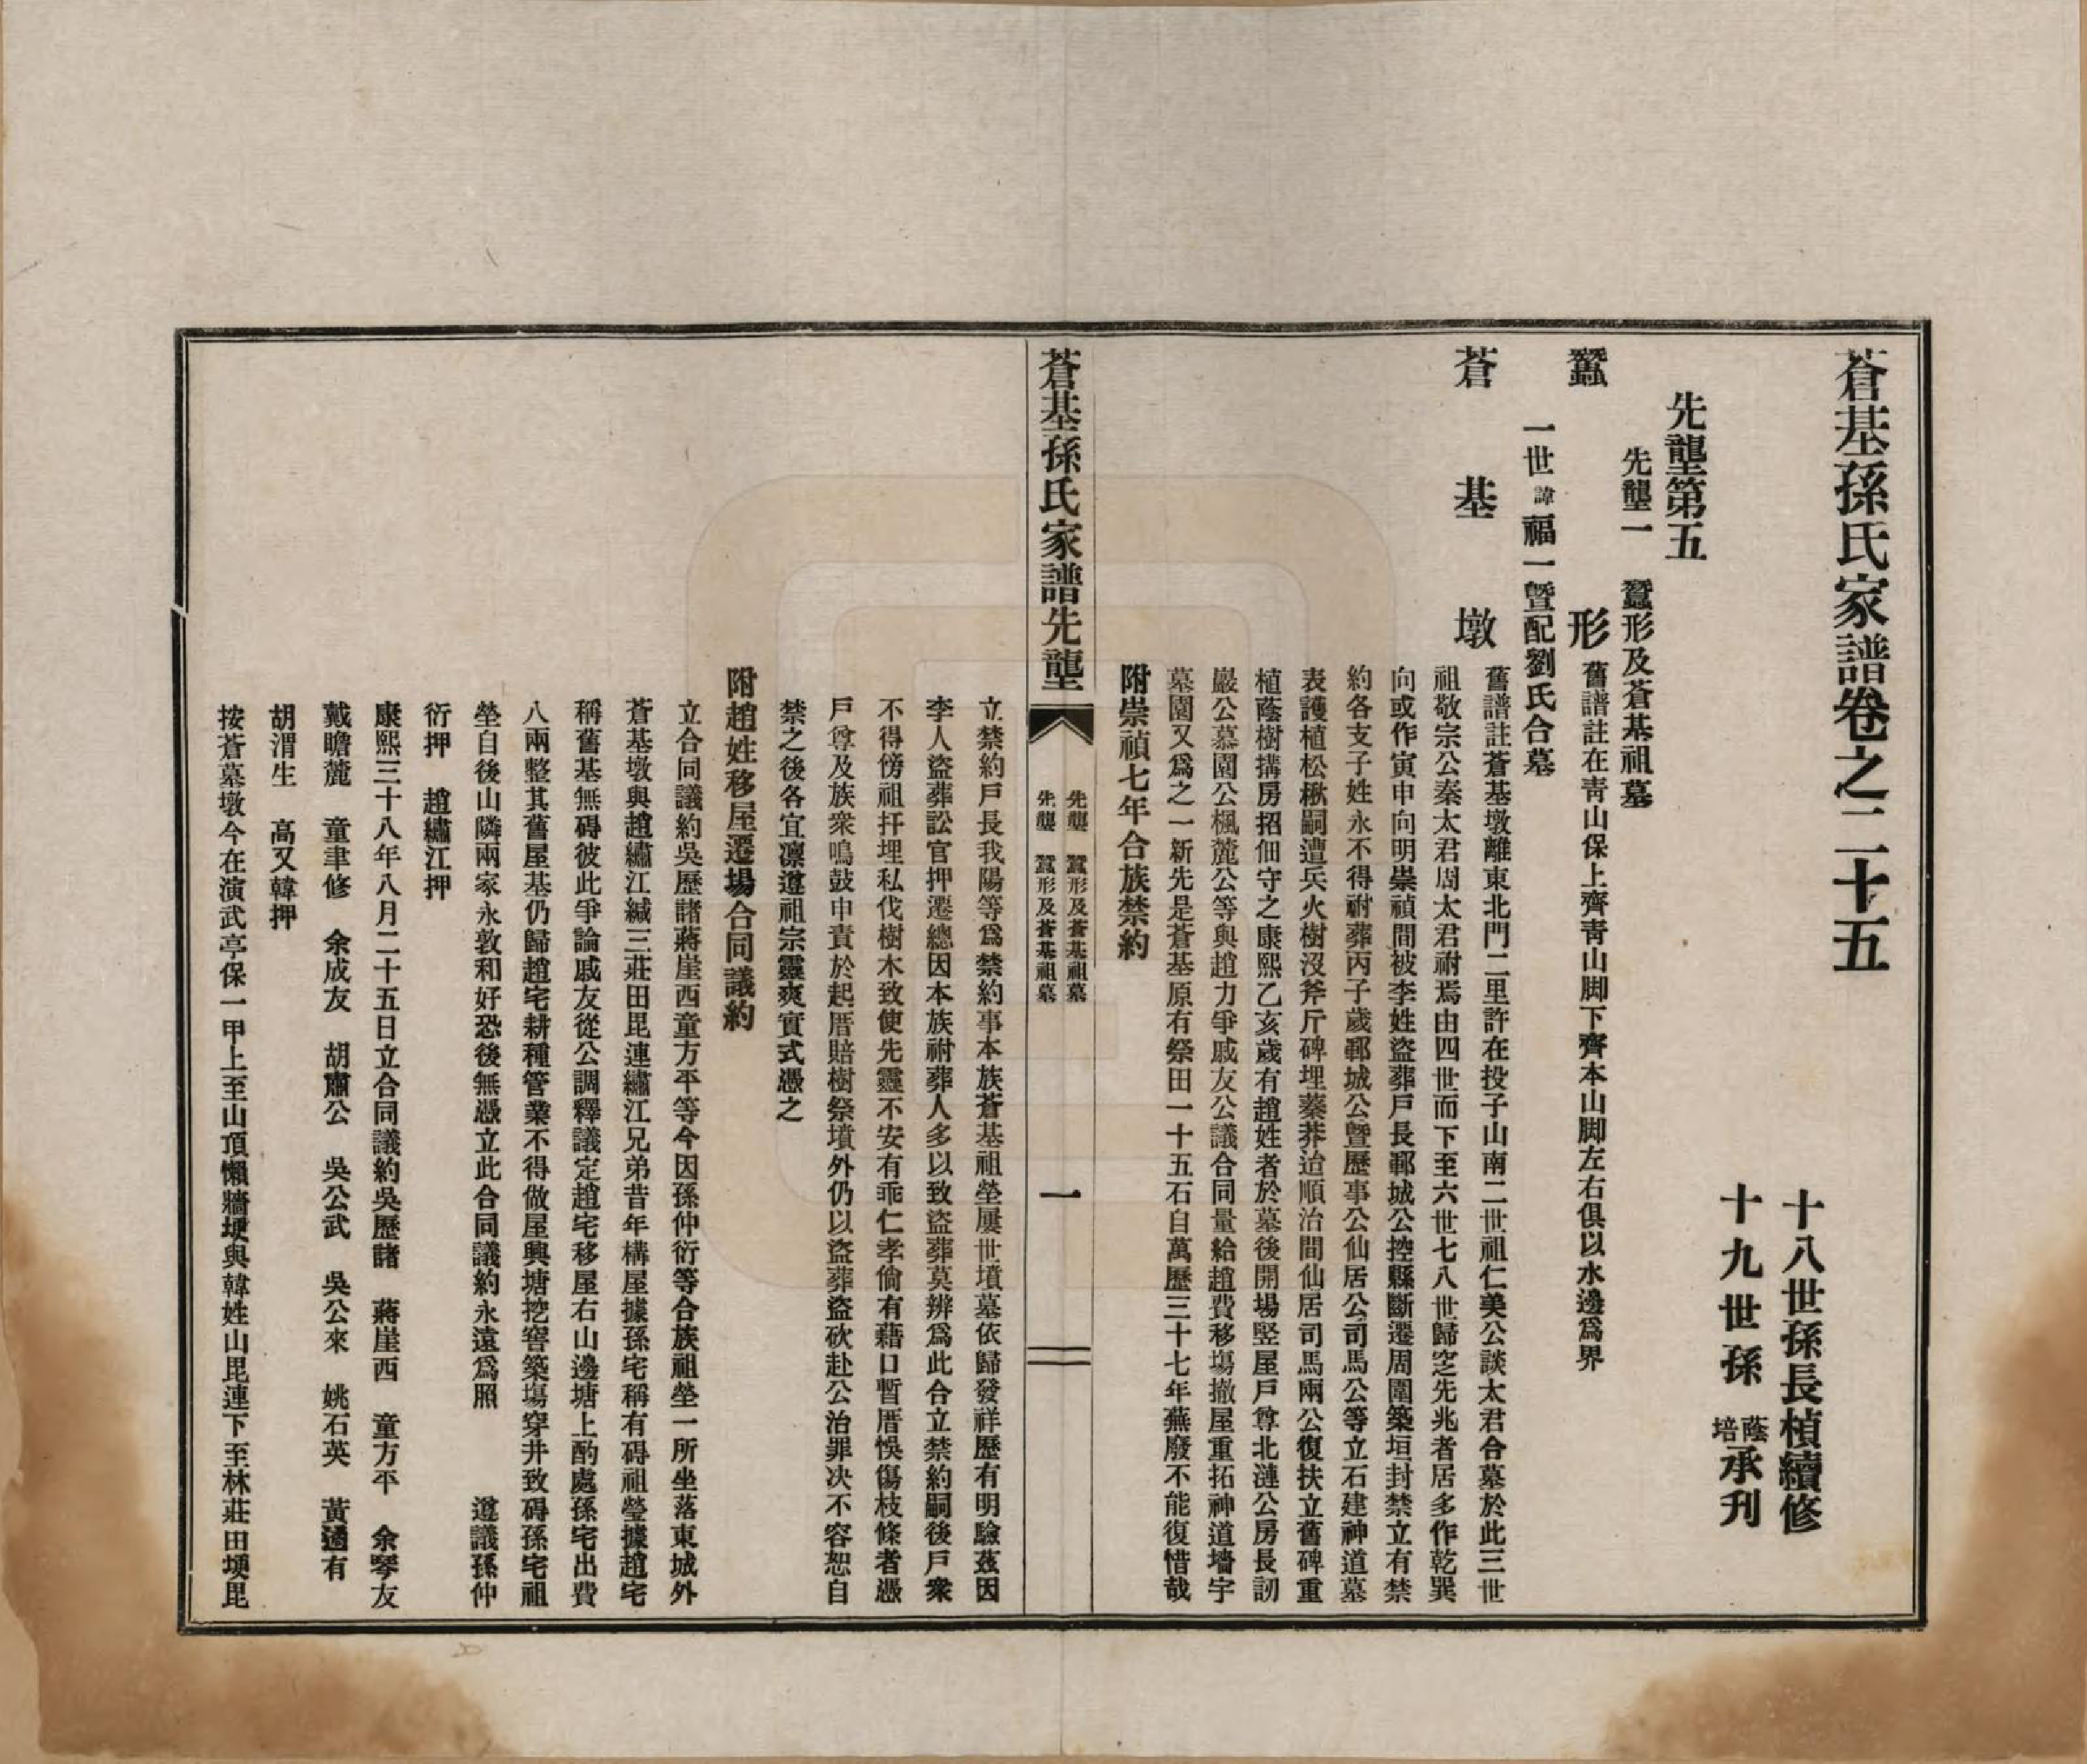 蒼基孫氏家譜卷之二十五
十八世孫長楨續修
十九世孫蔭培承刋
先壟第五
先壟一　蠶形及蒼基祖墓
蠶形　舊譜註在靑山保上齊靑山脚下齊本山脚左右俱以水邊爲界
一世諱福一曁配劉氏合墓
蒼基墩　舊譜註蒼基墩離東北門二里許在投子山南二世祖仁美公談太君合墓於此三世
祖敬宗公秦太君周太君祔焉由四世而下至六世七八世歸窆先兆者居多作乾巽
向或作寅申向明崇禎間被李姓盜葬戶長郾城公控縣斷遷周圍築垣封禁立有禁
約各支子姓永不得祔葬丙子歲郾城公曁歷事公仙居公司馬公等立石建神道墓
表護植松楸嗣遭兵火樹沒斧斤碑埋蓁莽迨順治間仙居司馬兩公復扶立舊碑重
植蔭樹搆房招佃守之康熙乙亥歲有趙姓者於墓後開場竪屋戶尊北漣公房長訒
巖公慕園公楓麓公等與趙力爭戚友公議合同量給趙費移塲撤屋重拓神道墻宇
墓園又爲之一新先是蒼基原有祭田一十五石自萬歷三十七年蕪廢不能復惜哉
附崇禎七年合族禁約
蒼基孫氏家譜先壟
先壟　蠶形及蒼基祖墓
先壟　蠶形及蒼基祖墓
一
立禁約戶長我陽等爲禁約事本族蒼基祖塋屢世墳墓依歸發祥歷有明驗茲因
李人盜葬訟官押遷總因本族祔葬人多以致盜葬莫辨爲此合立禁約嗣後戶衆
不得傍祖扦埋私伐樹木致使先靈不安有乖仁孝倘有藉口暫厝悞傷枝條者憑
戶尊及族衆鳴鼓申責於起厝賠樹祭墳外仍以盜葬盜砍赴公治罪决不容恕自
禁之後各宜凛遵祖宗靈爽實式憑之
附趙姓移屋遷場合同議約
立合同議約吳歷諸蔣崖西童方平等今因孫仲衍等合族祖塋一所坐落東城外
蒼基墩與趙繡江緘三莊田毘連繡江兄弟昔年構屋據孫宅稱有碍祖塋據趙宅
稱舊基無碍彼此爭論戚友從公調釋議定趙宅移屋右山邊塘上酌處孫宅出費
八兩整其舊屋基仍歸趙宅耕種管業不得做屋興塘挖窖築塲穿井致碍孫宅祖
塋自後山隣兩家永敦和好恐後無憑立此合同議約永遠爲照　遵議孫仲
衍押　趙繡江押
康熙三十八年八月二十五日立合同議約吳歷諸　蔣崖西　童方平　余琴友
戴瞻麓　童聿修　余成友　胡肅公　吳公武　吳公來　姚石英　黃遹有
胡渭生　高又韓押
按蒼墓墩今在演武亭保一甲上至山頂懶牆埂與韓姓山毘連下至林莊田埂毘